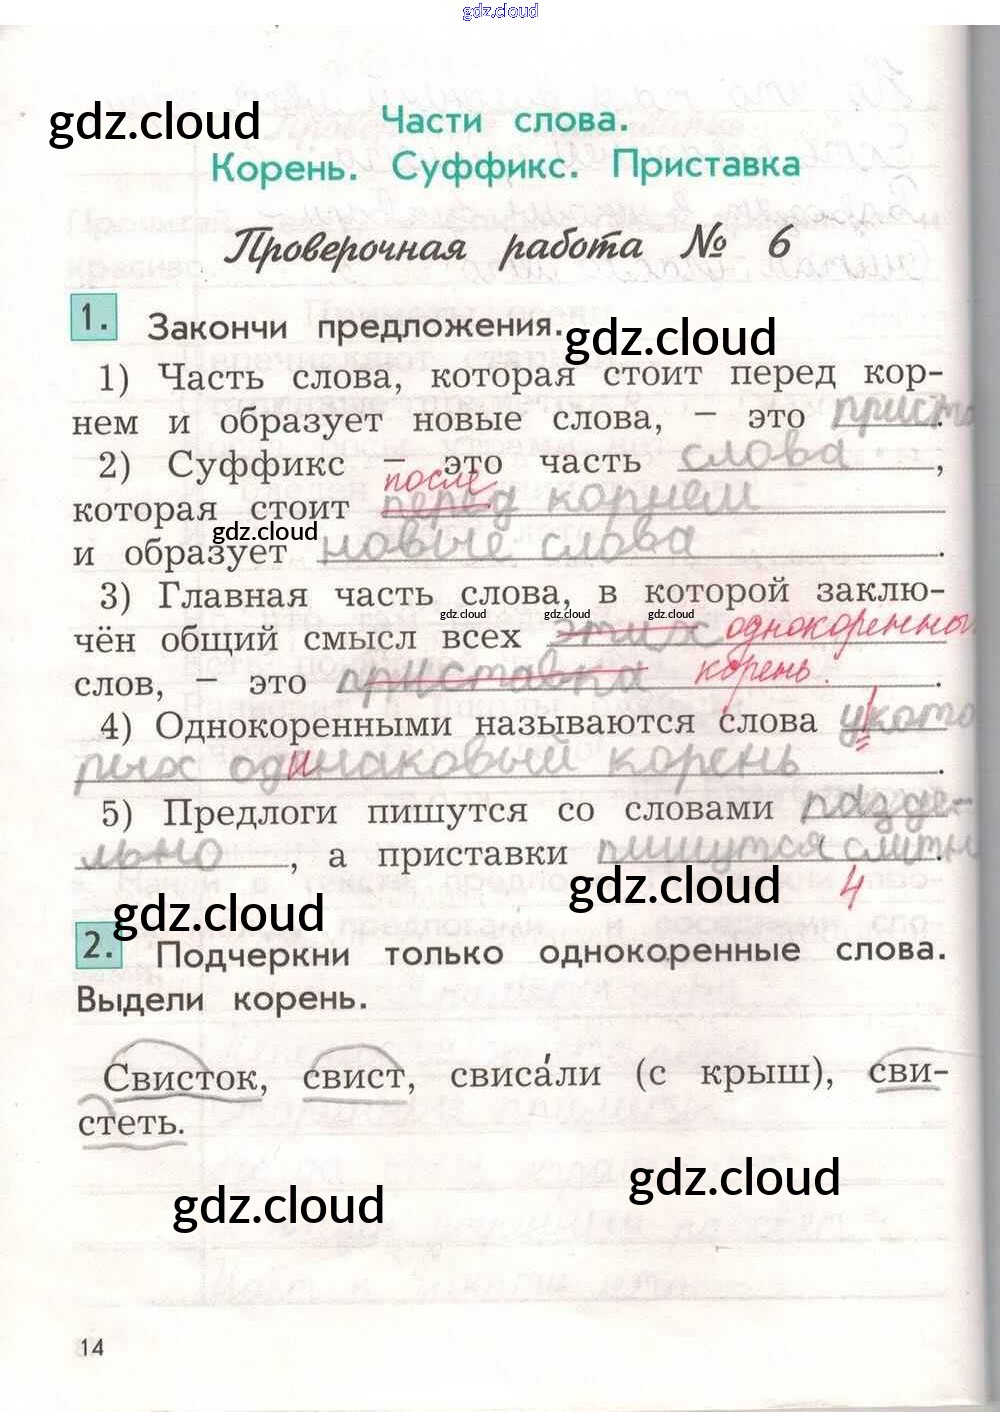 gdz.cloud
gdz.cloud
Части слова.
Корень. Суффикс. Приставка
Проверочная работа № 6
1. Закончи предложения.
gdz.cloud
1) Часть слова, которая стоит перед кор-
нем и образует новые слова, – это приста
2) Суффикс – это часть слова,
после
которая стоит перед корнем
gdz.cloud
и образует новые слова.
3) Главная часть слова, в которой заклю-
gdz.cloud gdz.cloud gdz.cloud
чён общий смысл всех этих однокоренны
слов, – это приставка корень.
4) Однокоренными называются слова у кото
рых одинаковый корень.
5) Предлоги пишутся со словами разде-
льно, а приставки пишутся слитн.
gdz.cloud 4
gdz.cloud
2. Подчеркни только однокоренные слова.
Выдели корень.
Свисток, свист, свиса́ли (с крыш), сви-
стеть.
gdz.cloud
gdz.cloud
14